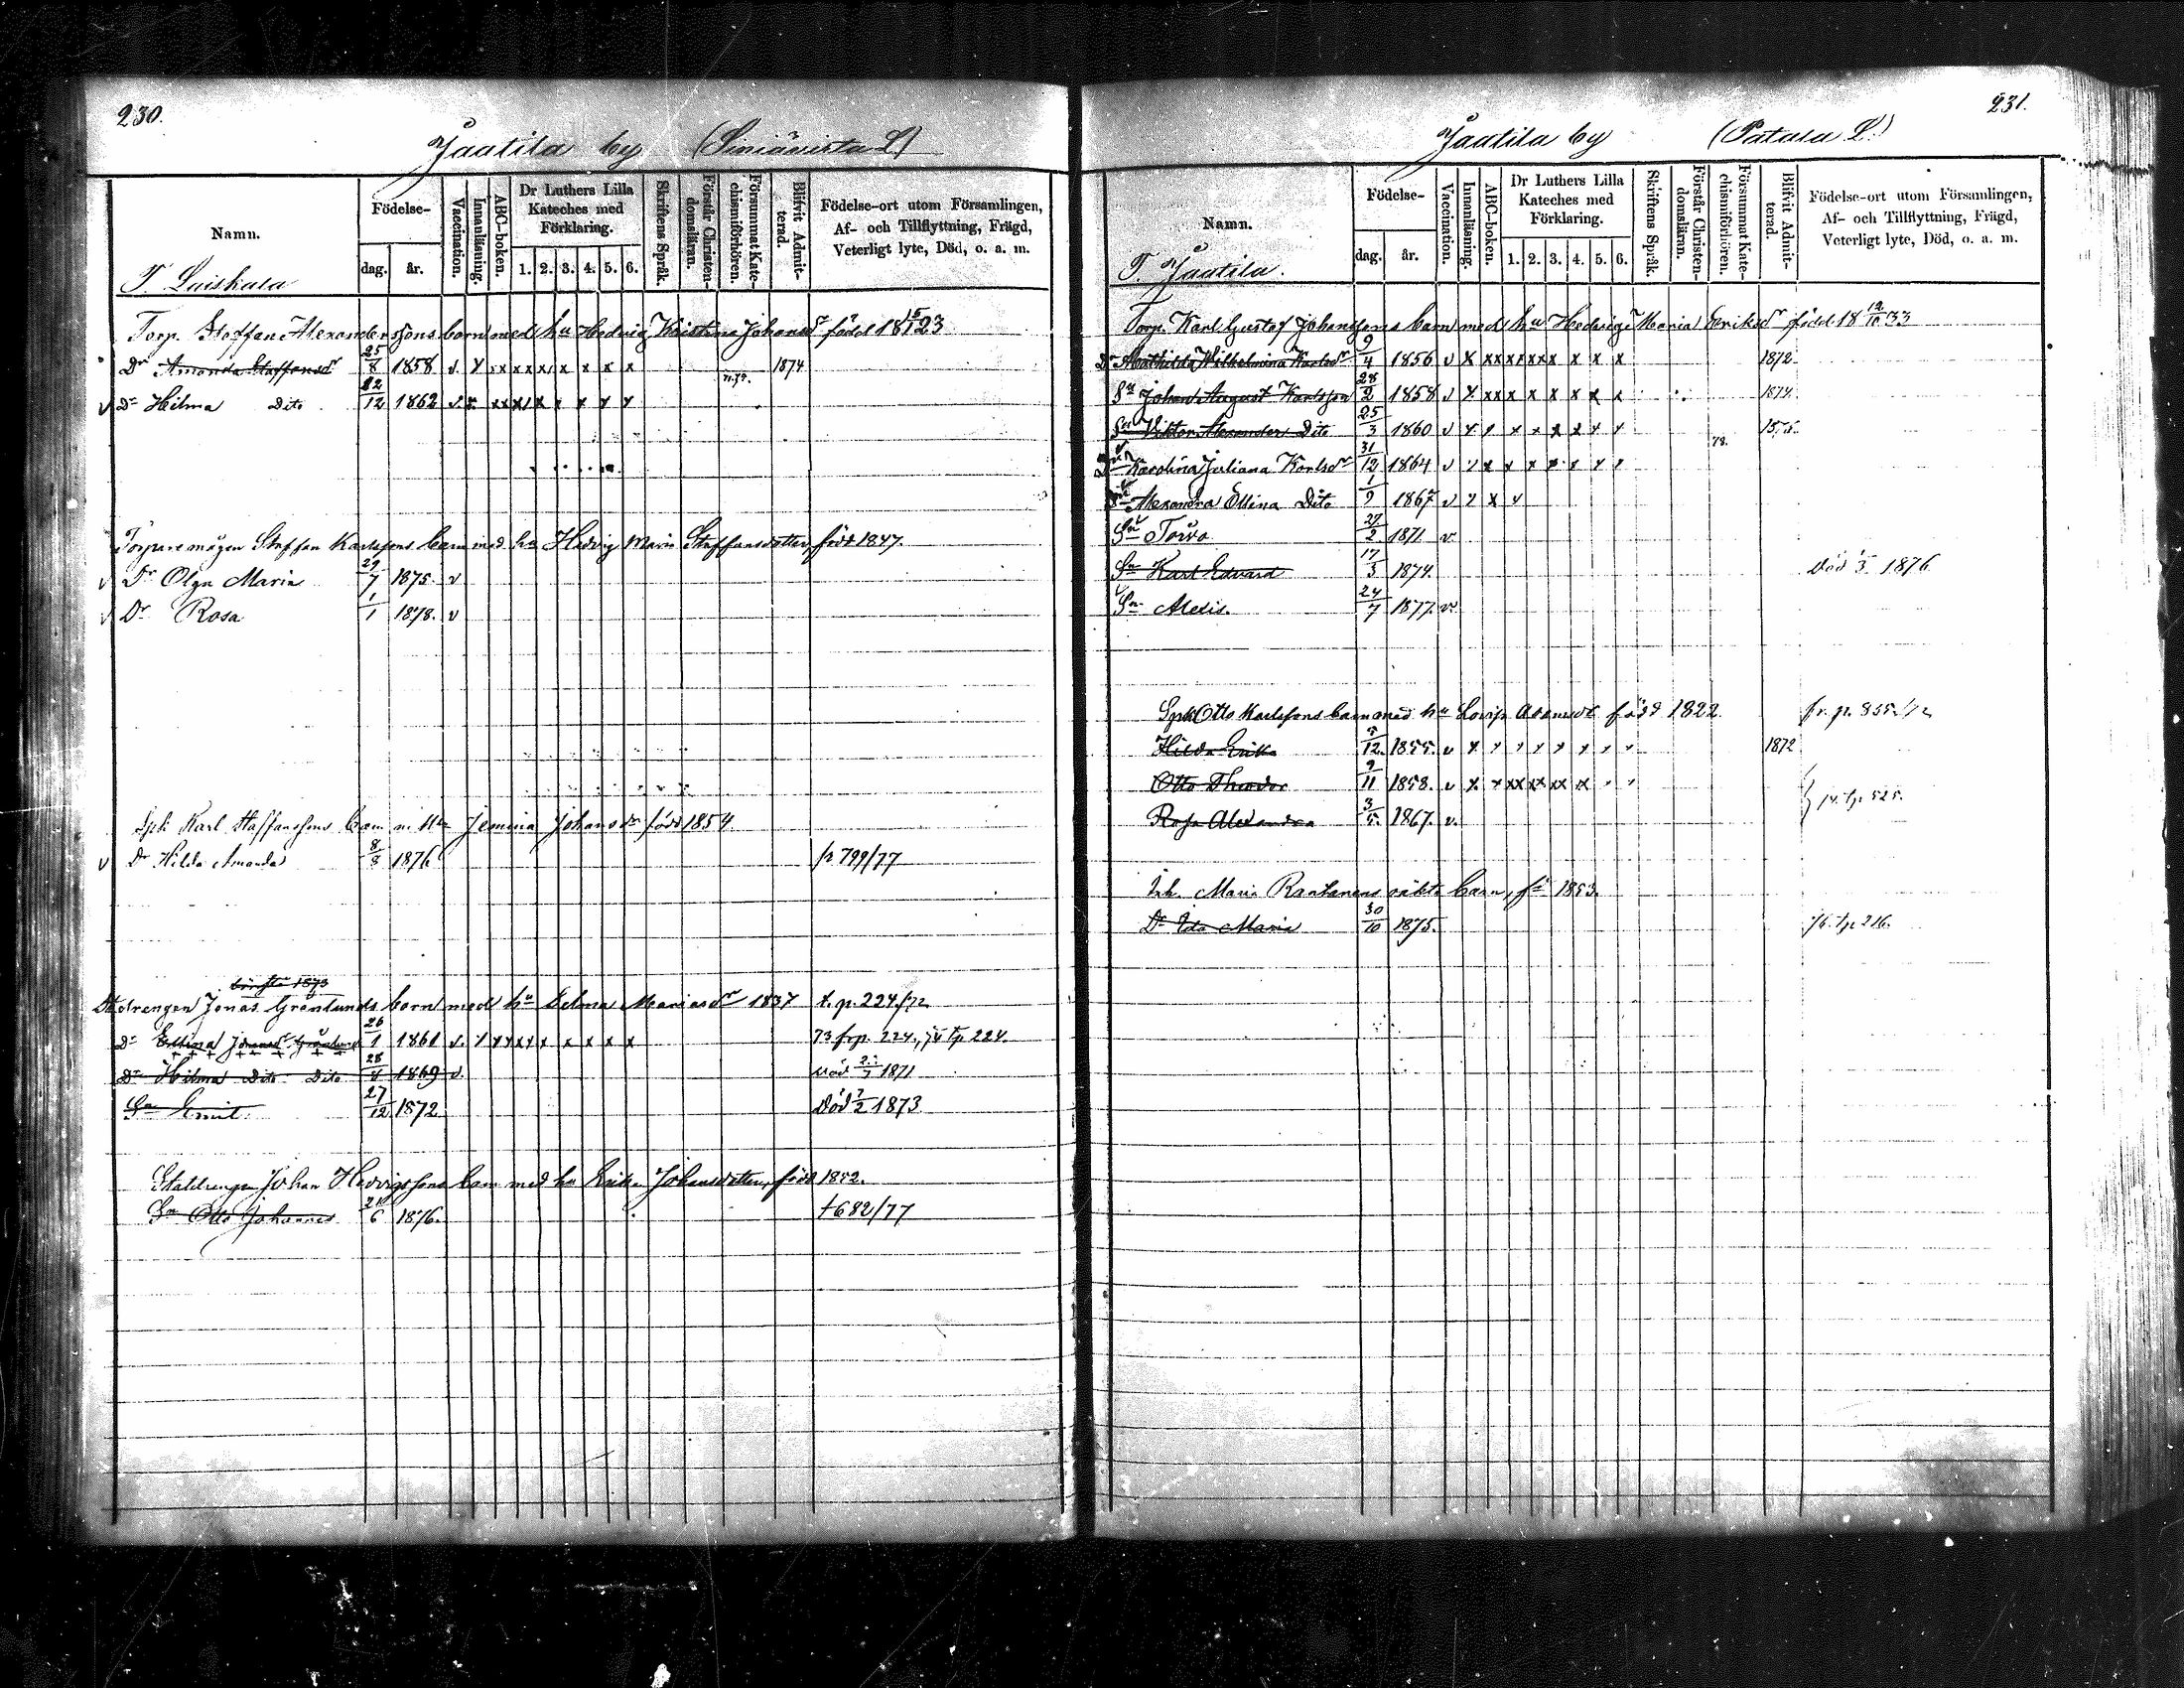 230.
Jaatila by (Siniänistu L)
Namn.
Födelse-
dag. år.
Vaccination.
Innanläsning.
ABC-boken.
Dr Luthers Lilla Kateches med Förklaring.
1. 2. 3. 4. 5. 6.
Skriftens Språk.
Förstår Christen-domsläran.
Försummat Kate-chismiförhören.
Blifvit Admit-terad.
Födelse-ort utom Församlingen, Af- och Tillflyttning, Frägd, Veterligt lyte, Död, o. a. m.
T. Laiskala
Torp. Staffan Alexanderssons barn med hu Hedvig Kristina Johansdr född 18 23
Dr Amanda Staffansdr 25/8 1858 v. x x x x x x x x x x 1874
v Dr Hilma Dito 12/12 1862 v. x x x x x x x x x
Torparemågen Staffan Karlssons barn med hu Hedvig Maria Staffansdotter, född 1847.
v Dr Olga Maria 29/7 1875. v
v Dr Rosa 1/1 1878. v
Spk Karl Staffanssons barn m. Hu Jemina Johansdr född 1854.
v Dr Hilda Amanda 8/3 1876 fr 799/77
1873
Stdrengen Jonas Grönlunds barn med hu Selma Mariasdr 1837 t. p. 224/72
Dr Ellina Jonasdr Grönlund 26/1 1861 v. x x x x x x x x x x 73 frp. 224., 74 tp 224.
Dr Hilma Dito Dito 28/4 1869 v. död 1871
Sn Emil 27/12 1872 död 7/2 1873
Statdrengen Johan Hedvigssons barn med hu Erika Johansdotter, född 1852.
Sn Otto Johannes 21/6 1876. t 682/77
231.
Jaatila by (Patala L.)
Namn.
Födelse-
dag. år.
Vaccination.
Innanläsning.
ABC-boken.
Dr Luthers Lilla Kateches med Förklaring.
1. 2. 3. 4. 5. 6.
Skriftens Språk.
Förstår Christen-domsläran.
Försummat Kate-chismiförhören.
Blifvit Admit-terad.
Födelse-ort utom Församlingen, Af- och Tillflyttning, Frägd, Veterligt lyte, Död, o. a. m.
T. Jaatila.
Torp. Karl Gustaf Johanssons barn med hu Hedvig Maria Eriksdr född 18 12/10 33
Dr Mathilda Wilhelmina Karlsdr 9/4 1856 v x x x x x x x x x x x 1872
Sn Johan August Karlsson 28/2 1858 v x x x x x x x x x 1874.
Sn Viktor Alexander Dito 25/3 1860 v x x x x x x x x
Dr Karolina Juliana Karlsdr 31/12 1864 v x x x x x x x x 78.
Dr Alexandra Ellina Dito 1/9 1867 v x x x
Sn Toivo 27/2 1871 v
Sn Karl Edvard 17/3 1874. död 1876
Sn Alexis. 24/7 1877. v.
Spk Otto Karlssons barn med hu Lovisa Adamsdr född 1822 fr. p. 855./72
Hilda Erika 5/12. 1855. v x x x x x x x x 1872
Otto Theodor 9/11 1858. v x x x x x x x x x
Rosa Alexandra 3/5. 1867. v. 74. tp 525.
Inh. Maria Rantanens oäkta barn, fd 1853.
Dr Ida Maria 30/10 1875. 76. tp 216.